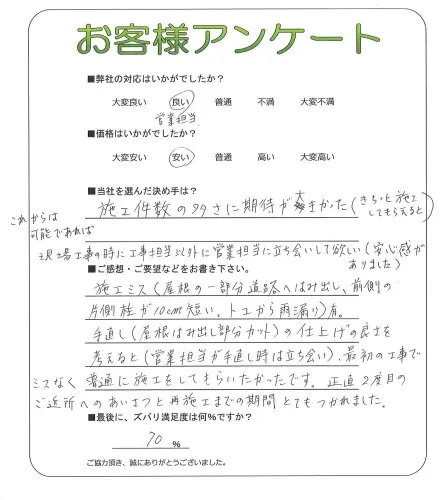 お客様アンケート
■弊社の対応はいかがでしたか？
大変良い 良い 普通 不満 大変不満
営業担当
■価格はいかがでしたか？
大変安い 安い 普通 高い 大変高い
■当社を選んだ決め手は？
施工件数の多さに期待が大きかった（きちっと施工
してもらえると）
これからは
可能であれば
現場工事の時に工事担当以外に営業担当に立ち会いして欲しい（安心感が
ありました）
■ご感想・ご要望などをお書き下さい。
施工ミス（屋根の一部分道路へはみ出し、前側の
片側柱が10cm短い、トユから雨漏り）有。
手直し（屋根はみ出し部分カット）の仕上げの良さを
考えると（営業担当が手直し時は立ち会い）、最初の工事で
ミスなく普通に施工をしてもらいたかったです。正直2度目の
ご近所へのあいさつと再施工までの期間とてもつかれました。
■最後に、ズバリ満足度は何%ですか？
70 %
ご協力頂き、誠にありがとうございました。